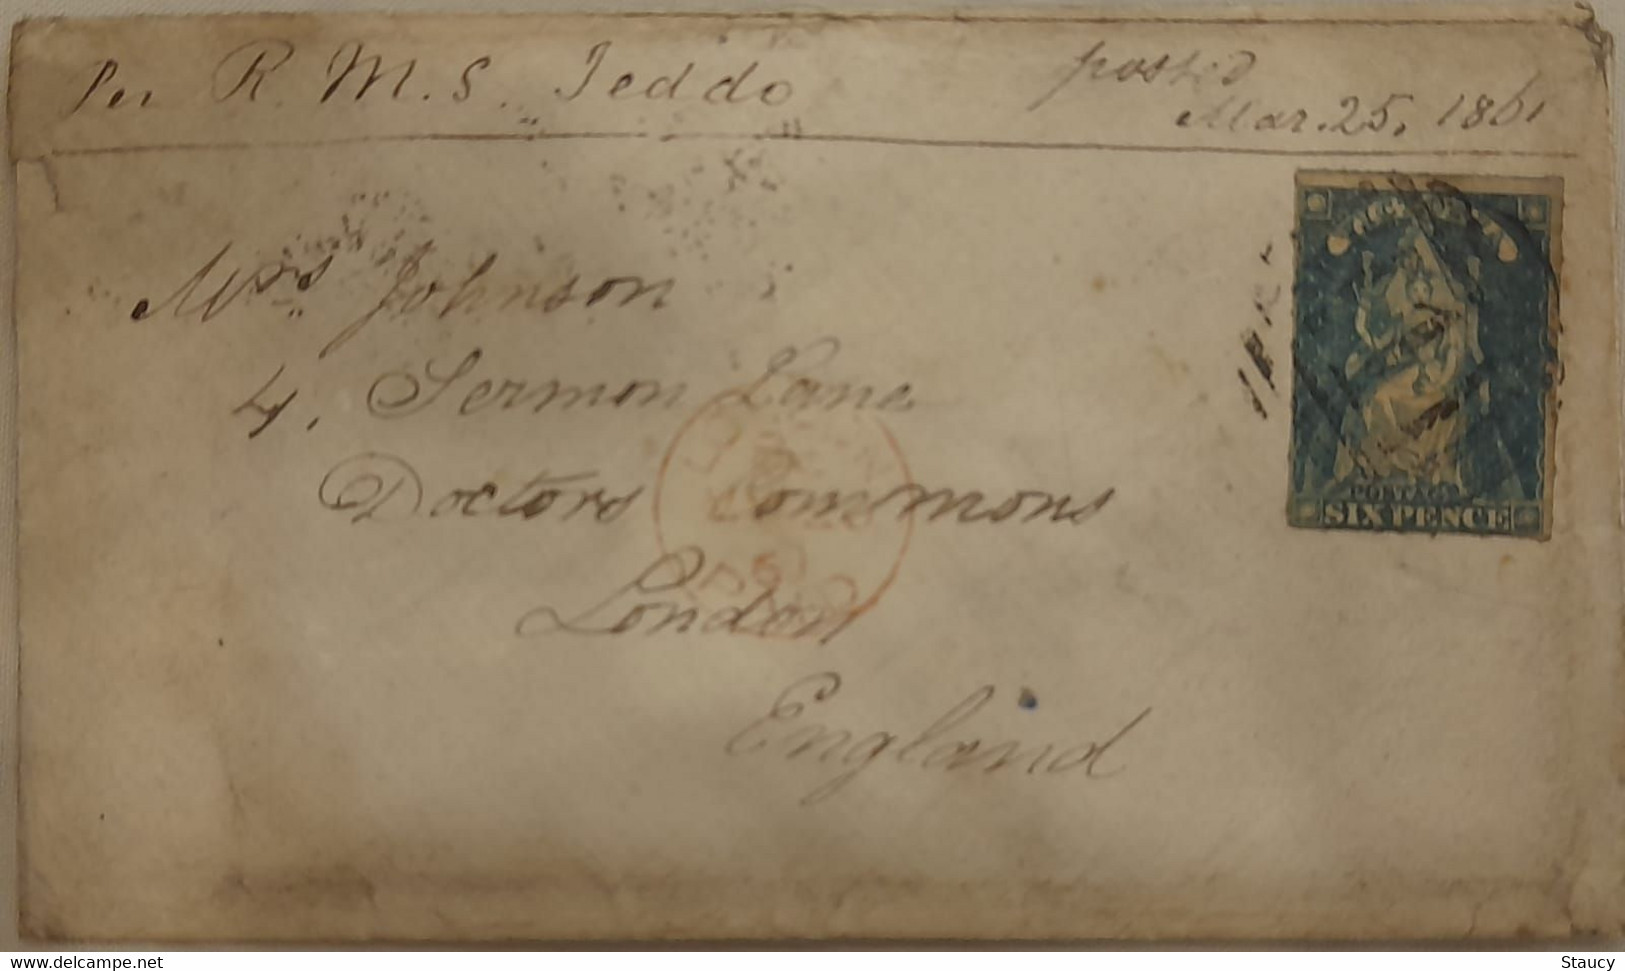 Per R. M. S. Jeddo
posted
Mar. 25, 1861
Mrs Johnson
4, Sermon Lane
Doctors Commons
London
England
VICTORIA
POSTAGE
SIX PENCE
delcampe.net
Staucy